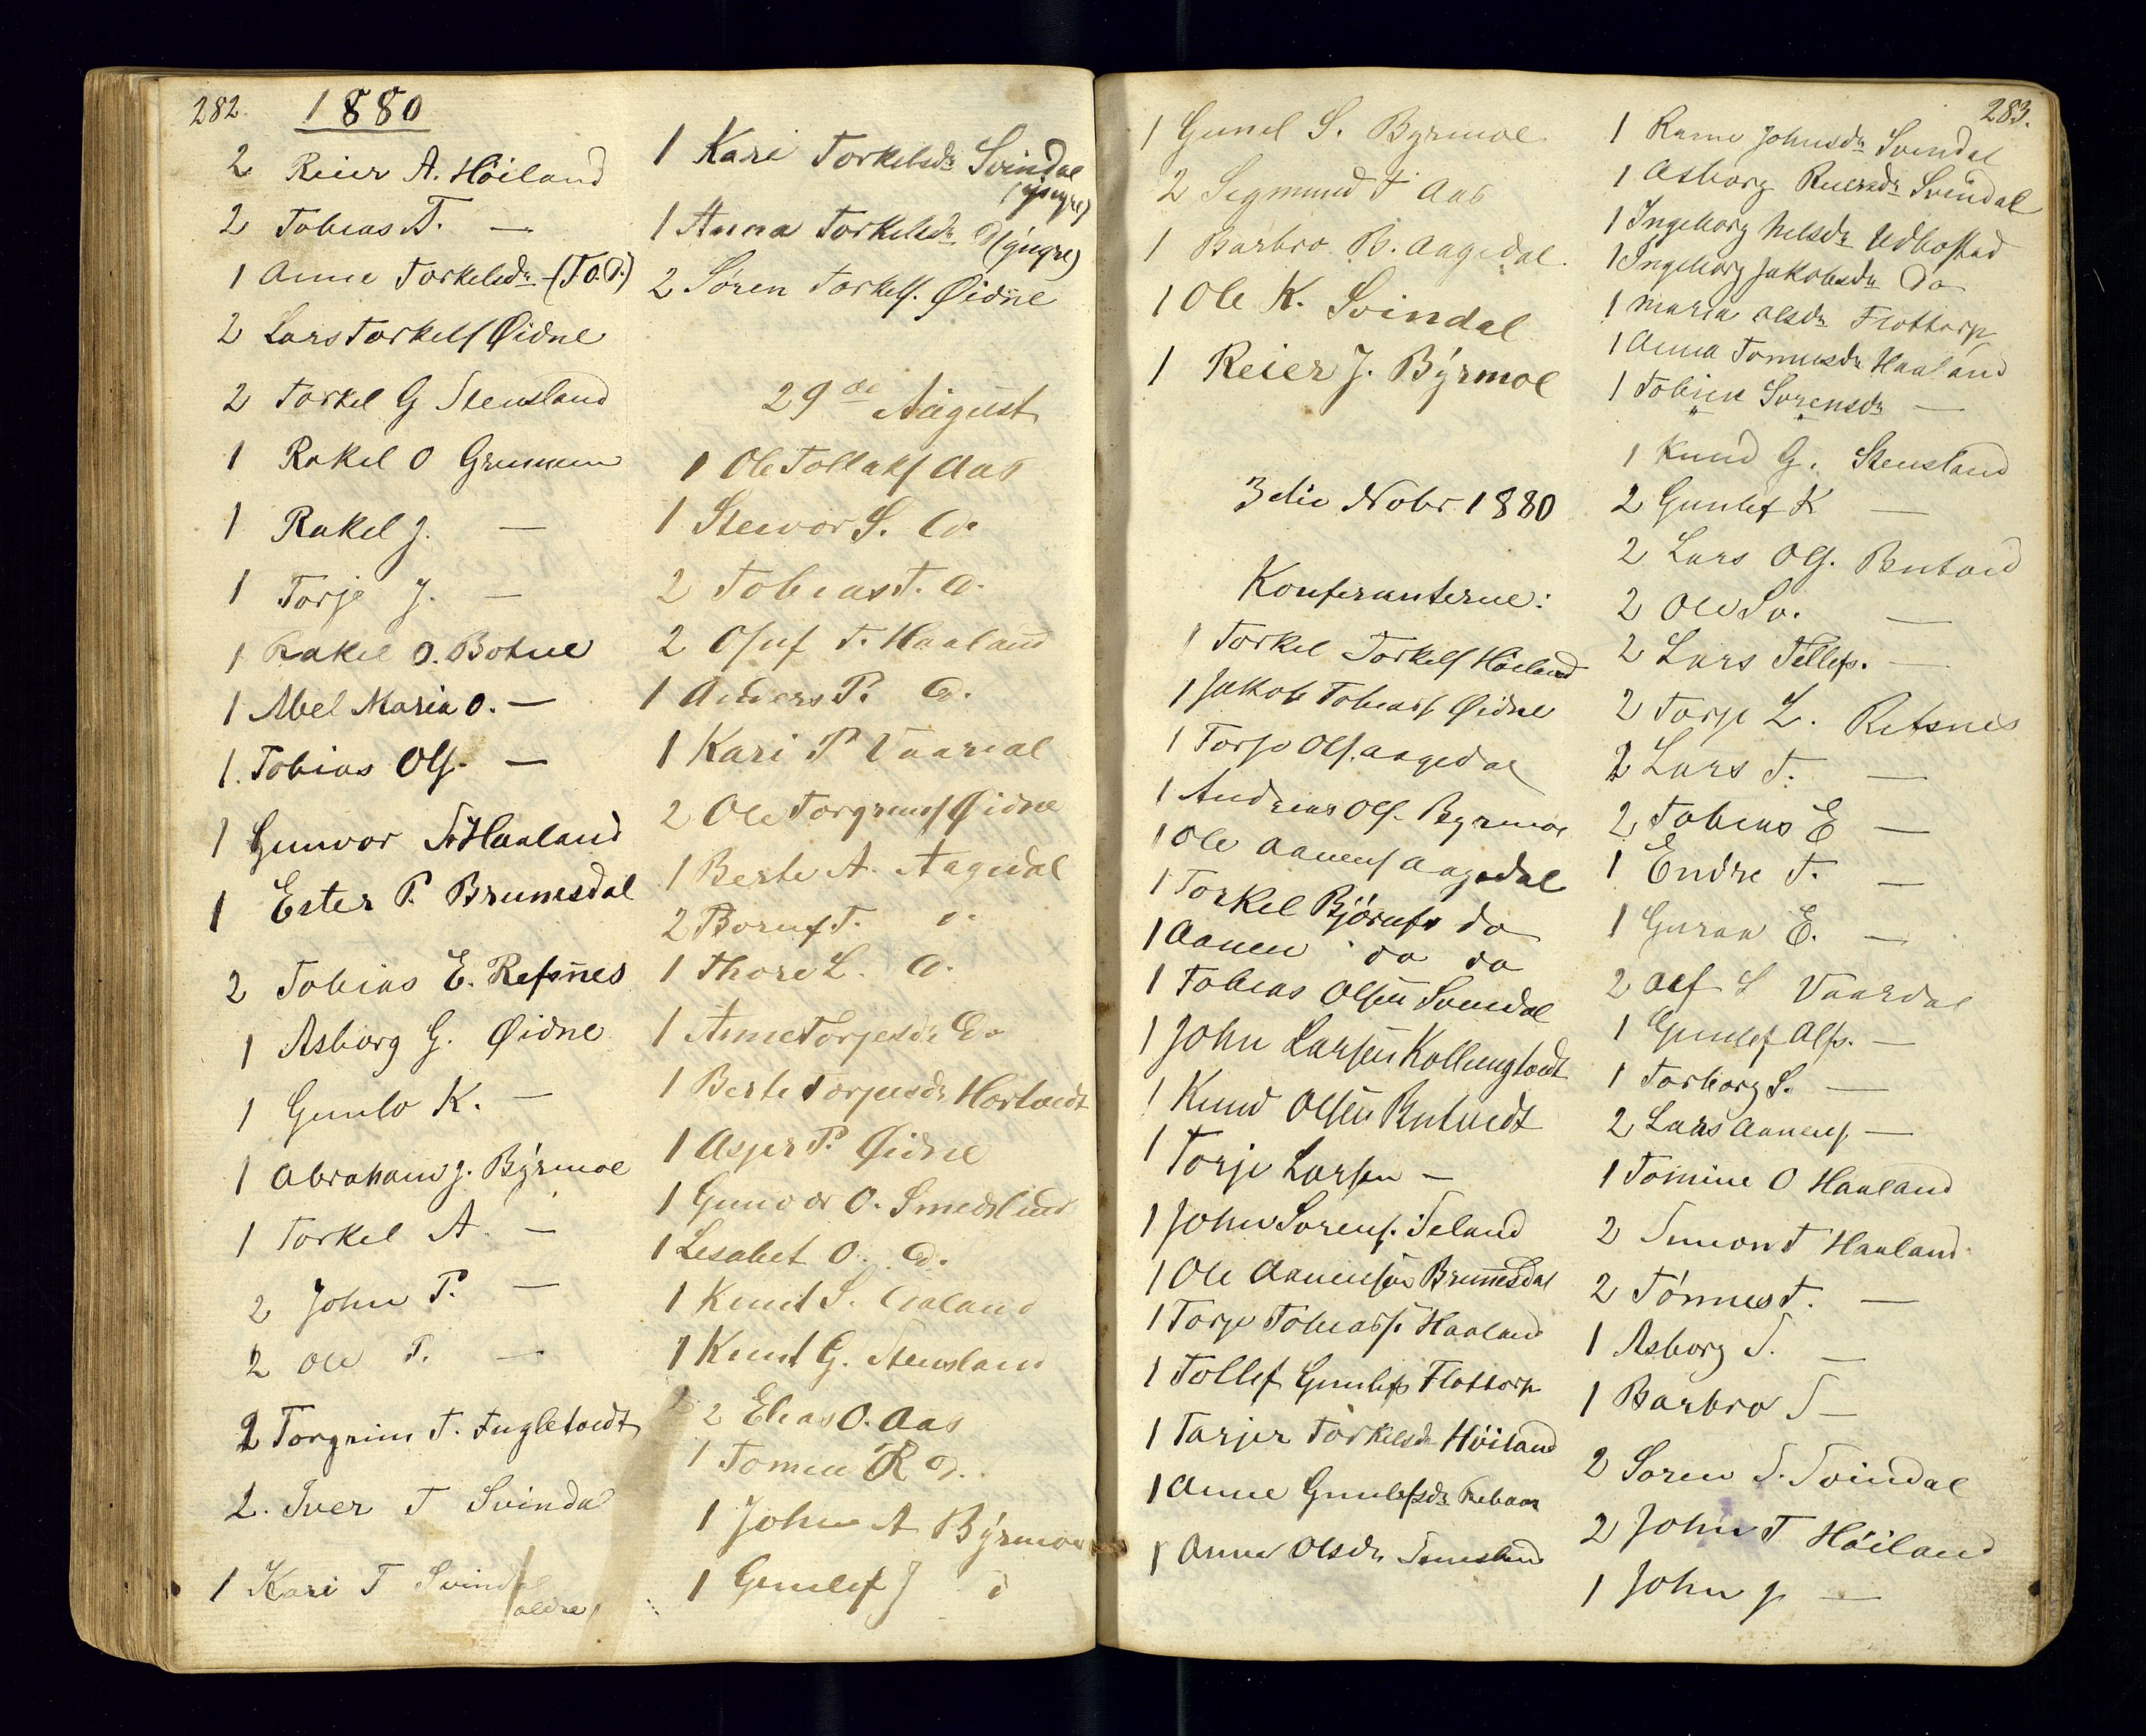 282.
1880
2 Reier A. Höiland
2 Tobias T. —
1 Anne Torkelsdr - (T.O.)
2 Lars Torkels Øidne
2 Torkel G Stensland
1 Rakel O Grummen
1 Rakel J. —
1 Torje J. —
1 Rakel O. Botne
1 Abel Maria O. —
1. Tobias Ols. —
1 Gunvor Haaland
1 Ester P. Brunesdal
2 Tobias E. Refsnes
1 Asborg G. Øidne
1 Gunlo K. —
1 Abraham J. Byrmoe
1 Torkel A. —
2 John P. —
2 Ole P. —
2 Torgrim T. Fuglestvedt
2. Iver T Svindal
1 Kari T Svindal
ældre
1 Kari Torkelsdr Svindal
(yngre)
1 Anna Torkelsdr
(yngre)
2 Sören Torkels. Øidne
29de August
1 Ole Tollaks Aas
1 Steevor S. Do.
2 Tobias T. Do.
2 Oluf T. Haaland
1 Anders P. Do.
1 Kari P Vaardal
2 Ole Torgrims Øidne
1 Berte A. Aagedal
2 Bornf T. Do
1 Thore L. Do.
1 Anne Torjesdr Do
1 Berte Torjesdr Hortvedt
1 Asjer P. Øidne
1 Gunvor O. Smedslund
1 Lisabet O. Do.
1 Knut S. Udland
1 Knut G. Stensland
2 Elias O. Aas
1 Tomine R Do.
1 John A Byrmoe
1 Gunlef J do
283.
1 Gunel S. Byrmoe
2 Sigmund T Aas
1 Barbro B. Aagedal.
1 Ole K. Svindal
1 Reier J. Byrmoe
3die Nobr. 1880
Konfermanterne:
1 Torkel Torkels Höiland
1 Jakob Tobiass Øidne
1 Torje Ols. Aagedal
1 Andreas Ols. Byrmoe
1 Ole Aanens Aagedal
1 Torkel Bjørns do
1 Aanen do do
1 Tobias Olsen Svindal
1 John Larsen Kollungtvedt
1 Knud Olsen Butvedt
1 Torje Larsen —
1 John Sorens. Seland
1 Ole Aanensen Brunesdal
1 Torje Tobiass. Haaland
1 Tollef Gunlefs Flottorp
1 Tarjer Torkelsdr Höiland
1 Anne Gunlefsdr
1 Anne Olsdr
1 Johnsdr Svindal
1 Asborg Reiersdr Svindal
1 Ingeborg Nelsdr
1 Ingeborg Jakobsdr Do
1 Maria Olsdr Flottorp
1 Anna Tomesdr Haaland
1 Tobine Sorensdr —
1 Knud G. Stensland
2 Gunlef K —
2 Lars Ols. Butved
2 Ole So. —
2 Lars Tellefs. —
2 Torje L. Refsnes
2 Lars T. —
2 Tobias E —
1 Endre T. —
1 Guran E. —
2 Alf L Vaardal
1 Gunlef Alfs. —
1 Torborg S. —
2 Lars Aanens. —
1 Tomine O Haaland
2 Simon T Haaland
2 Tönnes T. —
1 Asborg S. —
1 Barbro S —
2 Soren T. Svindal
2 John T Höiland
1 John J. —